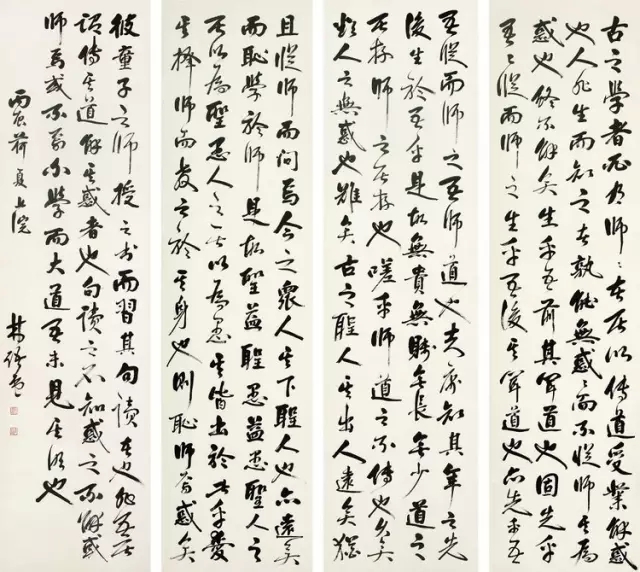 古之學者必有師々者所以傳道受業解惑
也人非生而知之者孰能無惑々而不從師其為
惑也終不解矣生乎吾前其聞道也固先乎
吾々從而師之生乎吾後其聞道也亦先乎吾
吾從而師之吾師道也夫庸知其年之先
後生於吾乎是故無貴無賤無長無少道之
所存師之所存也嗟乎師道之不傳也久矣
欲人之無惑也難矣古之聖人其出人遠矣猶
且從師而問焉今之眾人其下聖人也亦遠矣
而恥學於師是故聖益聖愚益愚聖人之
所以為聖愚人之所以為愚其皆出於此乎愛
其擇師而教之於其身也則恥師焉惑矣
彼童子之師授之書而習其句讀者也非吾所
謂傳其道解其惑者也句讀之不知惑之不解或
師焉或不焉小學而大道吾未見其明也
丙辰荷夏上浣
林